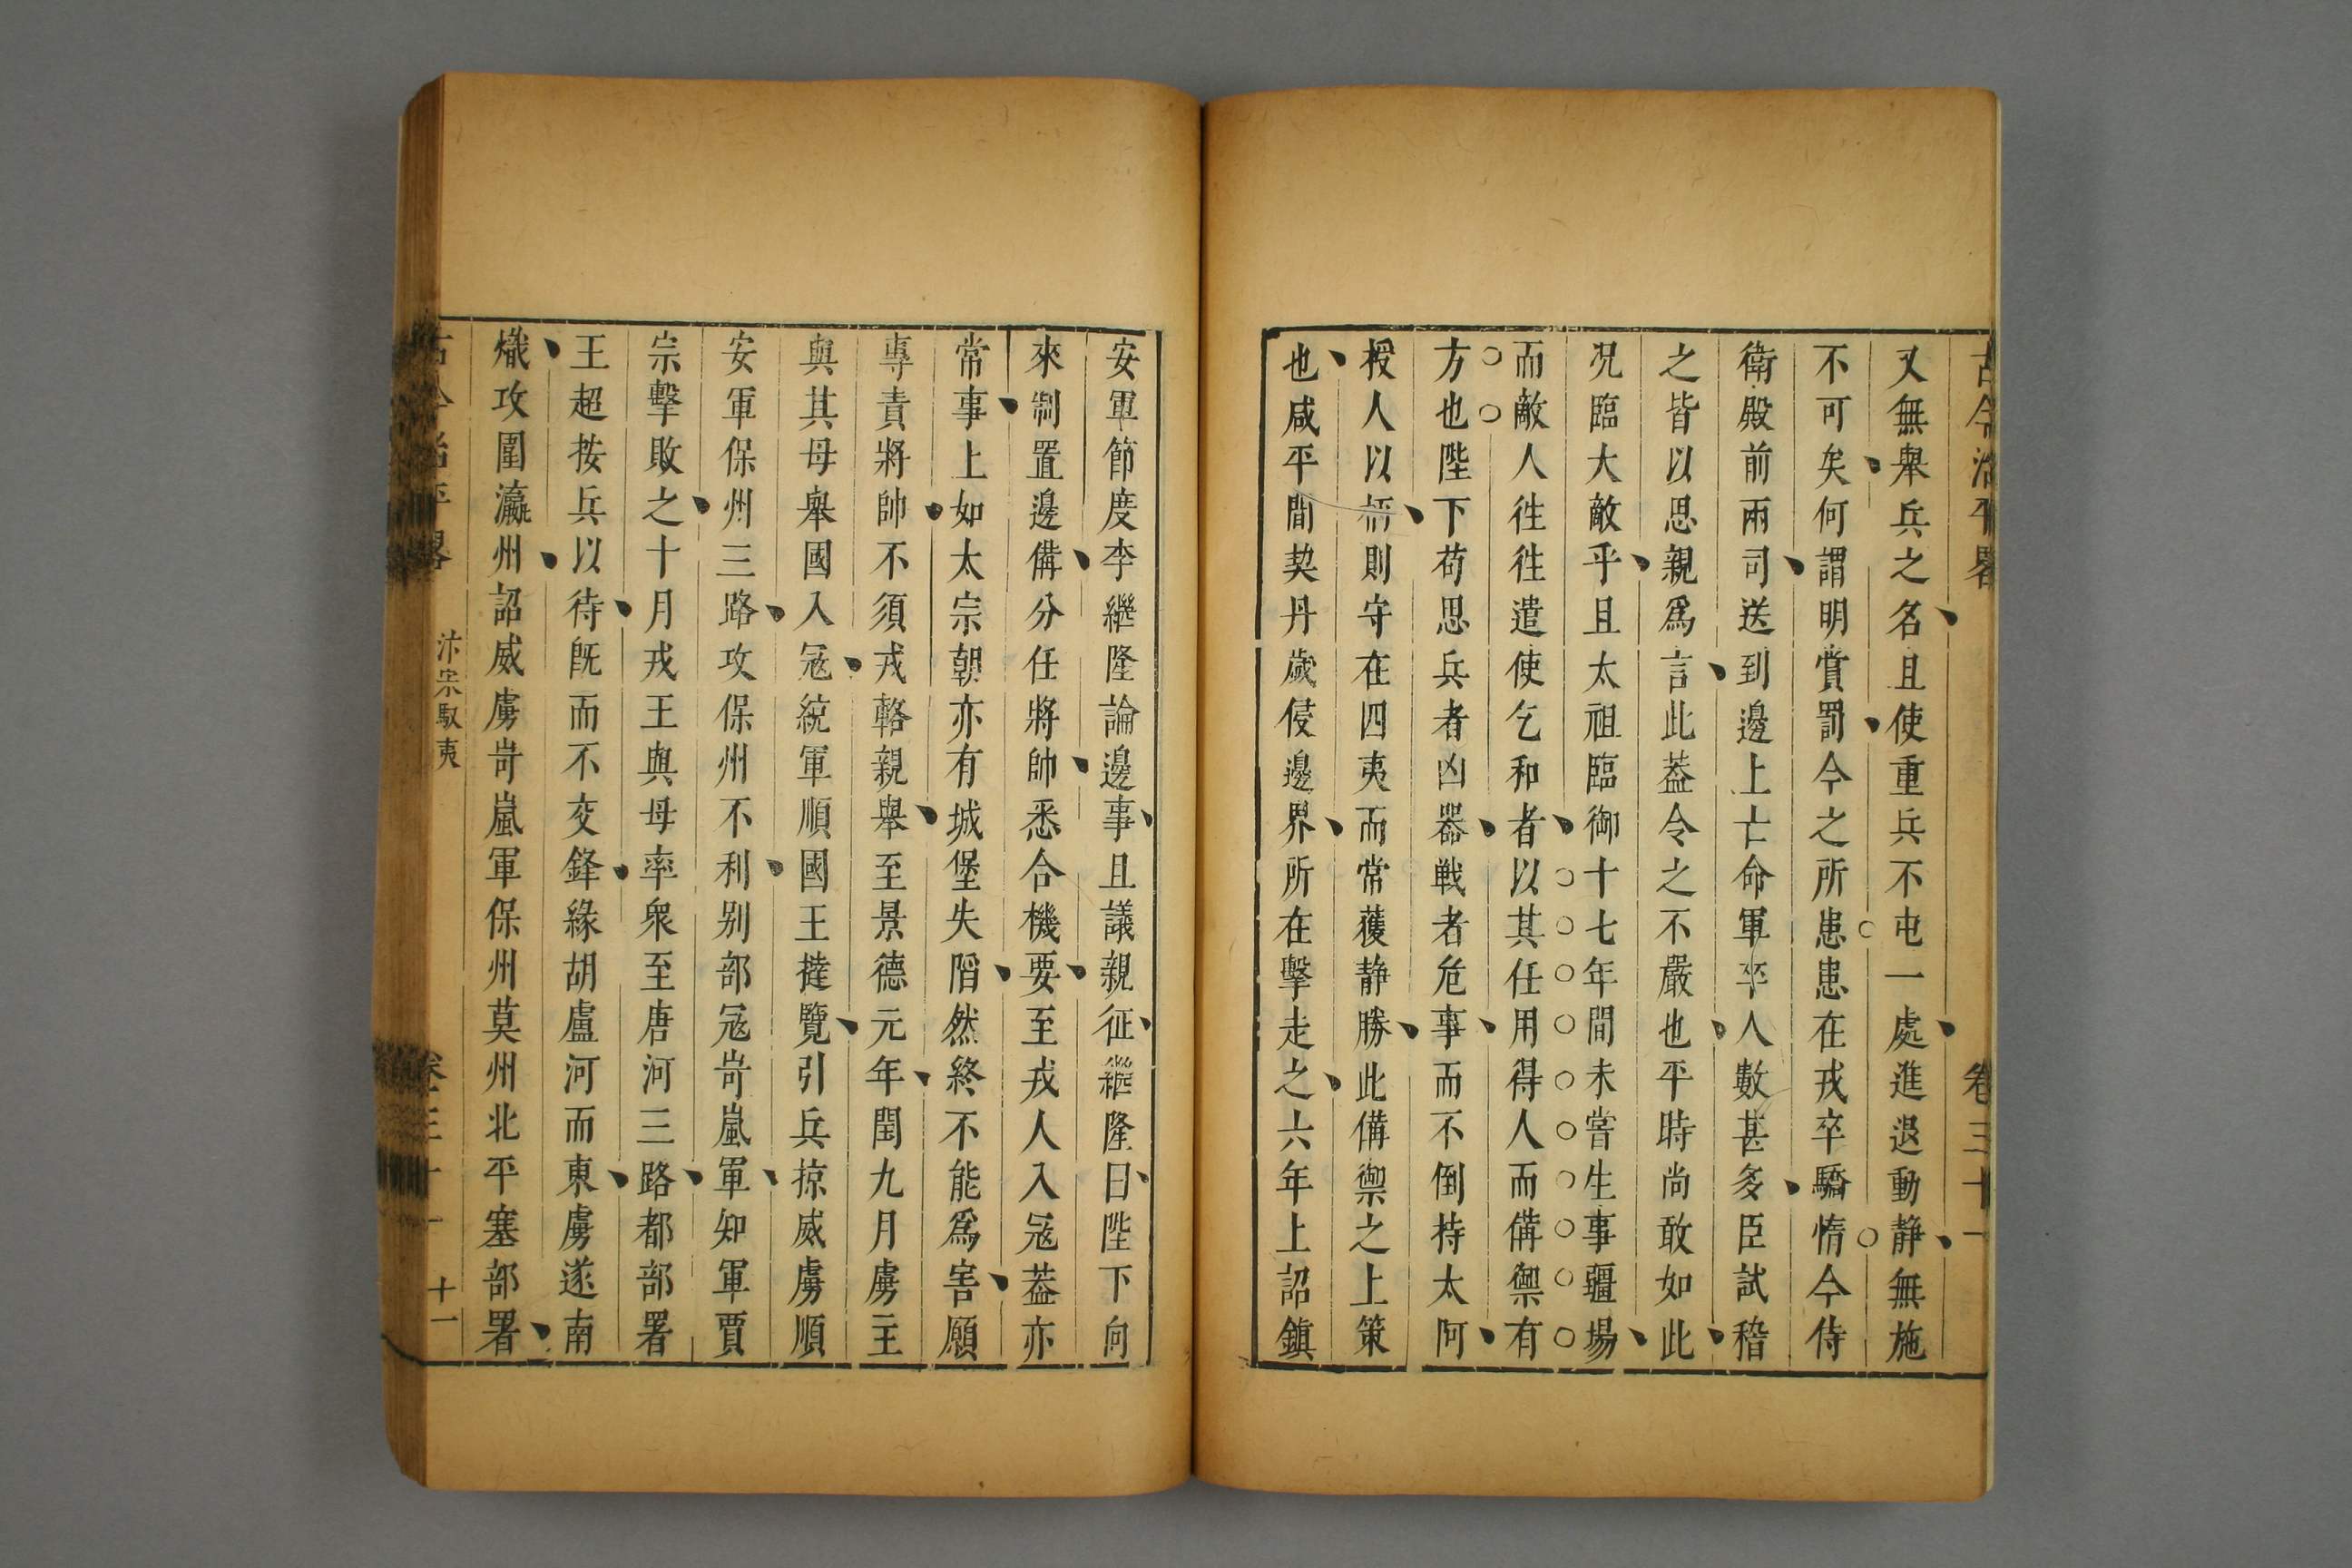 古今治平畧 卷三十一
又無舉兵之名且使重兵不屯一處進退動静無施
不可矣何謂明賞罰今之所患患在戎卒驕惰今侍
衛殿前兩司送到邊上亡命軍卒人數甚多臣試稽
之皆以思親爲言此葢令之不嚴也平時尚敢如此
况臨大敵乎且太祖臨御十七年間未嘗生事疆場
而敵人徃徃遣使乞和者以其任用得人而備禦有
方也陛下苟思兵者凶器戦者危事而不倒持太阿
授人以柄則守在四夷而常獲静勝此備禦之上策
也咸平間契丹歲侵邊界所在擊走之六年上詔鎮
安軍節度李繼隆論邊事且議親征繼隆曰陛下向
來制置邊備分任將帥悉合機要至戎人入冦葢亦
常事上如太宗朝亦有城堡失陷然終不能爲害願
專責將帥不須戎輅親舉至景德元年閏九月虜主
與其母舉國入冦統軍順國王撻覽引兵掠威虜順
安軍保州三路攻保州不利别部冦岢嵐軍知軍賈
宗擊敗之十月戎王與母率衆至唐河三路都部署
王超按兵以待旣而不交鋒緣胡盧河而東虜遂南
熾攻圍瀛州詔威虜岢嵐軍保州莫州北平塞部署
古今治平畧 汴宗馭夷 卷三十一 十一